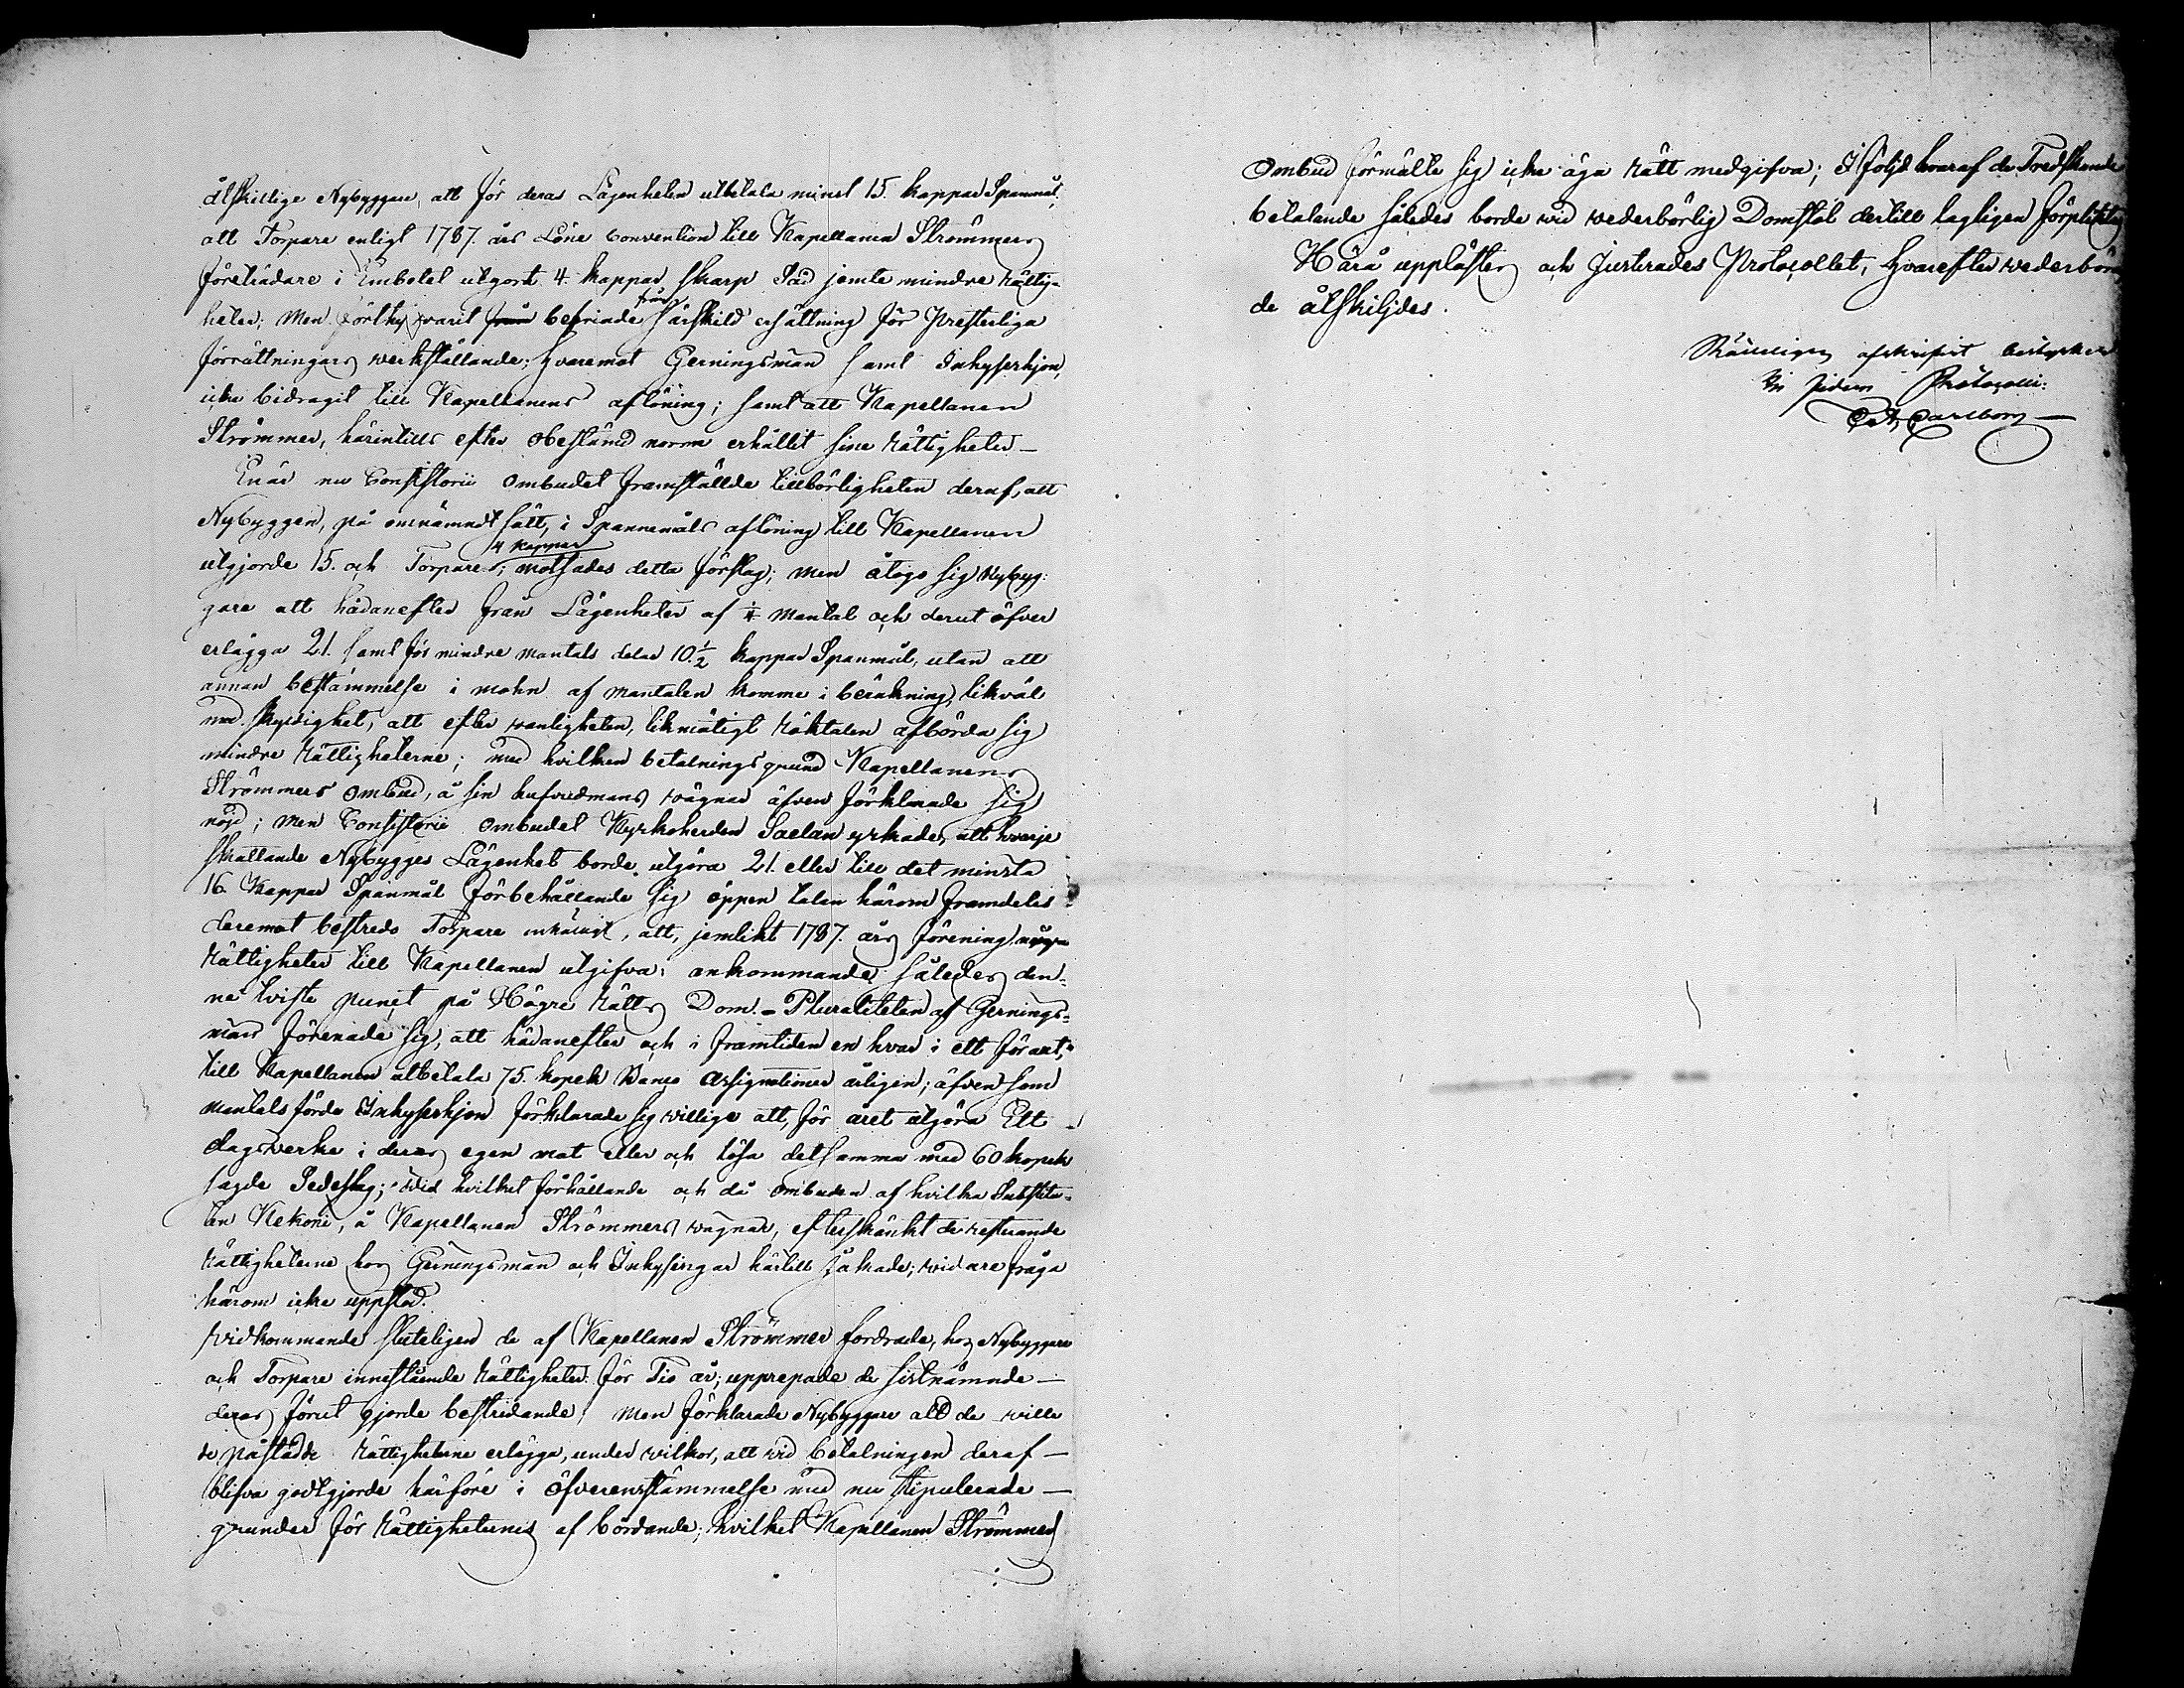 åtskillige Nybyggare, att för deras Lägenheter utbetala minst 15. kappar Spannmål
att Torpare enligt 1787. års Löne Convention till Kapellanen Strömmers
företrädare i Embetet utgort 4. kappar skarp Säd jemte mindre rättig-
heter; men förthy varit från befriade särskild ersättning för Presterliga
från
förrättningars werkställande; hvaremot Gerningsmän samt Inhyseshjon,
icke bidragit till Kapellanens aflöning; samt att Kapellanen
Strömmer, härintills efter obestämd norm erhållit sine rättigheter —
Enär nu Consistorii ombudet framställde tillbörligheten deraf, att
Nybyggen, på omnämndt sätt, i Spannemåls aflöning till Kapellanen
utgjorde 15. och Torpare; motsades detta förslag; men åtogo sig Nybyg:
4 kappar
gare att hädanefter från Lägenheter af ¼ Mantal och derutöfver
erlägga 21. samt för mindre mantals delar 10.½ kappar Spanmål, utan att
annan bestämmelse i mohn af mantalen komme i beräkning, likväl
med skyldighet, att efter vanligheten, likmätigt röktalen afbörda sig
mindre rättigheterne; med hvilken betalningsgrund Kapellanen
Strömmers ombud, å sin hufvudmans wägnar äfven förklarade sig
nöjd; men Consistorii ombudet Kyrkoherden Saelan yrkade, att hvarje
skattande Nybygges Lägenhet borde utgöra 21. eller till det minsta
16. Kappar Spanmål förbehållande sig öppen talan härom framdeles
deremot bestredo Torpare enhälligt, att, jemlikt 1787. års förening några
rättigheter till Kapellanen utgifva; ankommande således den-
na twiste punct på Högre Rätts Dom. - Pluraliteten af Gernings-
män förenade sig, att hädanefter och i framtiden en hvar i ett för allt,
till Kapellanen utbetala 75. kopek Banco Assignationer årligen; äfven som
Mantalsförde Inhyseshjon förklarade sig willige att, för året utgöra Ett
dagsverke i deras egen mat eller och lösa detsamma med 60 kopek
sagde Sedeslag; wid hvilket förhållande och då ombuden af hvilka Substitu-
ten Kekoni, å Kapellanen Strömmers wägnar, efterskänkt de resterande
rättigheterne hos Gerningsmän och Inhysingar härtill jakade; widare fråga
härom icke uppstod.
widkommande sluteligen de af Kapellanen Strömmer fordrade, hos Nybyggare
och Torpare innestående rättigheter för Tio år; upprepade de sistnämnde —
deras förut gjorde bestridande; Men förklarade Nybyggare att de wille
de påstådde rättigheterne erlägga, under wilkor, att wid betalningen deraf —
blifva godtgjorde härföre i öfverensstämmelse med nu stipulerade —
grunder för rättigheternes afbördande; hvilket Kapellanen Strömmers
Ombud förmälte sig icke äga rätt medgifva; I följd hvaraf de Tredskande
betalande således borde wid wederbörlig Domstol dertill lagligen förpliktas
Härå upplästes och Justerades Protocollet, hvarefter wederböran
de åtskiljdes.
Rätteligen afskrifvit bestyrker
Protocoll:
Carlborg —